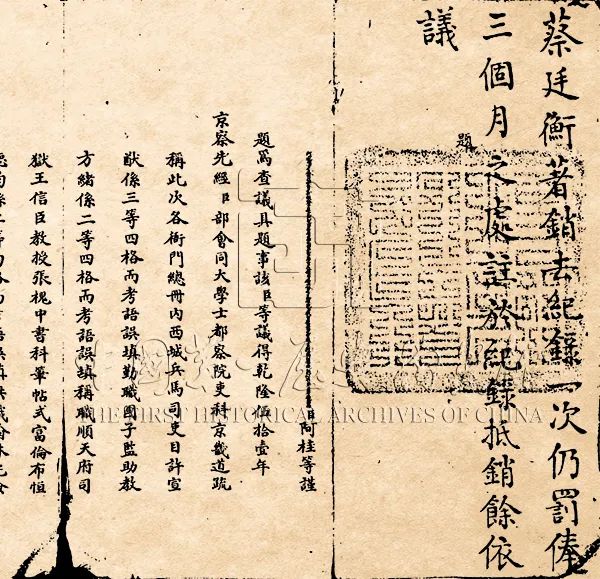 蔡廷衡著銷去紀錄一次仍罰俸
三個月之處註於紀錄抵銷餘依
議
題
臣阿桂等謹
題爲查議具題事該臣等議得乾隆伍拾壹年
京察先經臣部會同大學士都察院吏科京畿道疏
稱此次各衙門總冊內西城兵馬司吏目許宣
猷係三等四格而考語誤填勤職國子監助教
方緒係二等四格而考語誤填稱職順天府司
獄王信臣教授張槐中書科筆帖式富倫布恒
THE FIRST HISTORICAL ARCHIVES OF CHINA